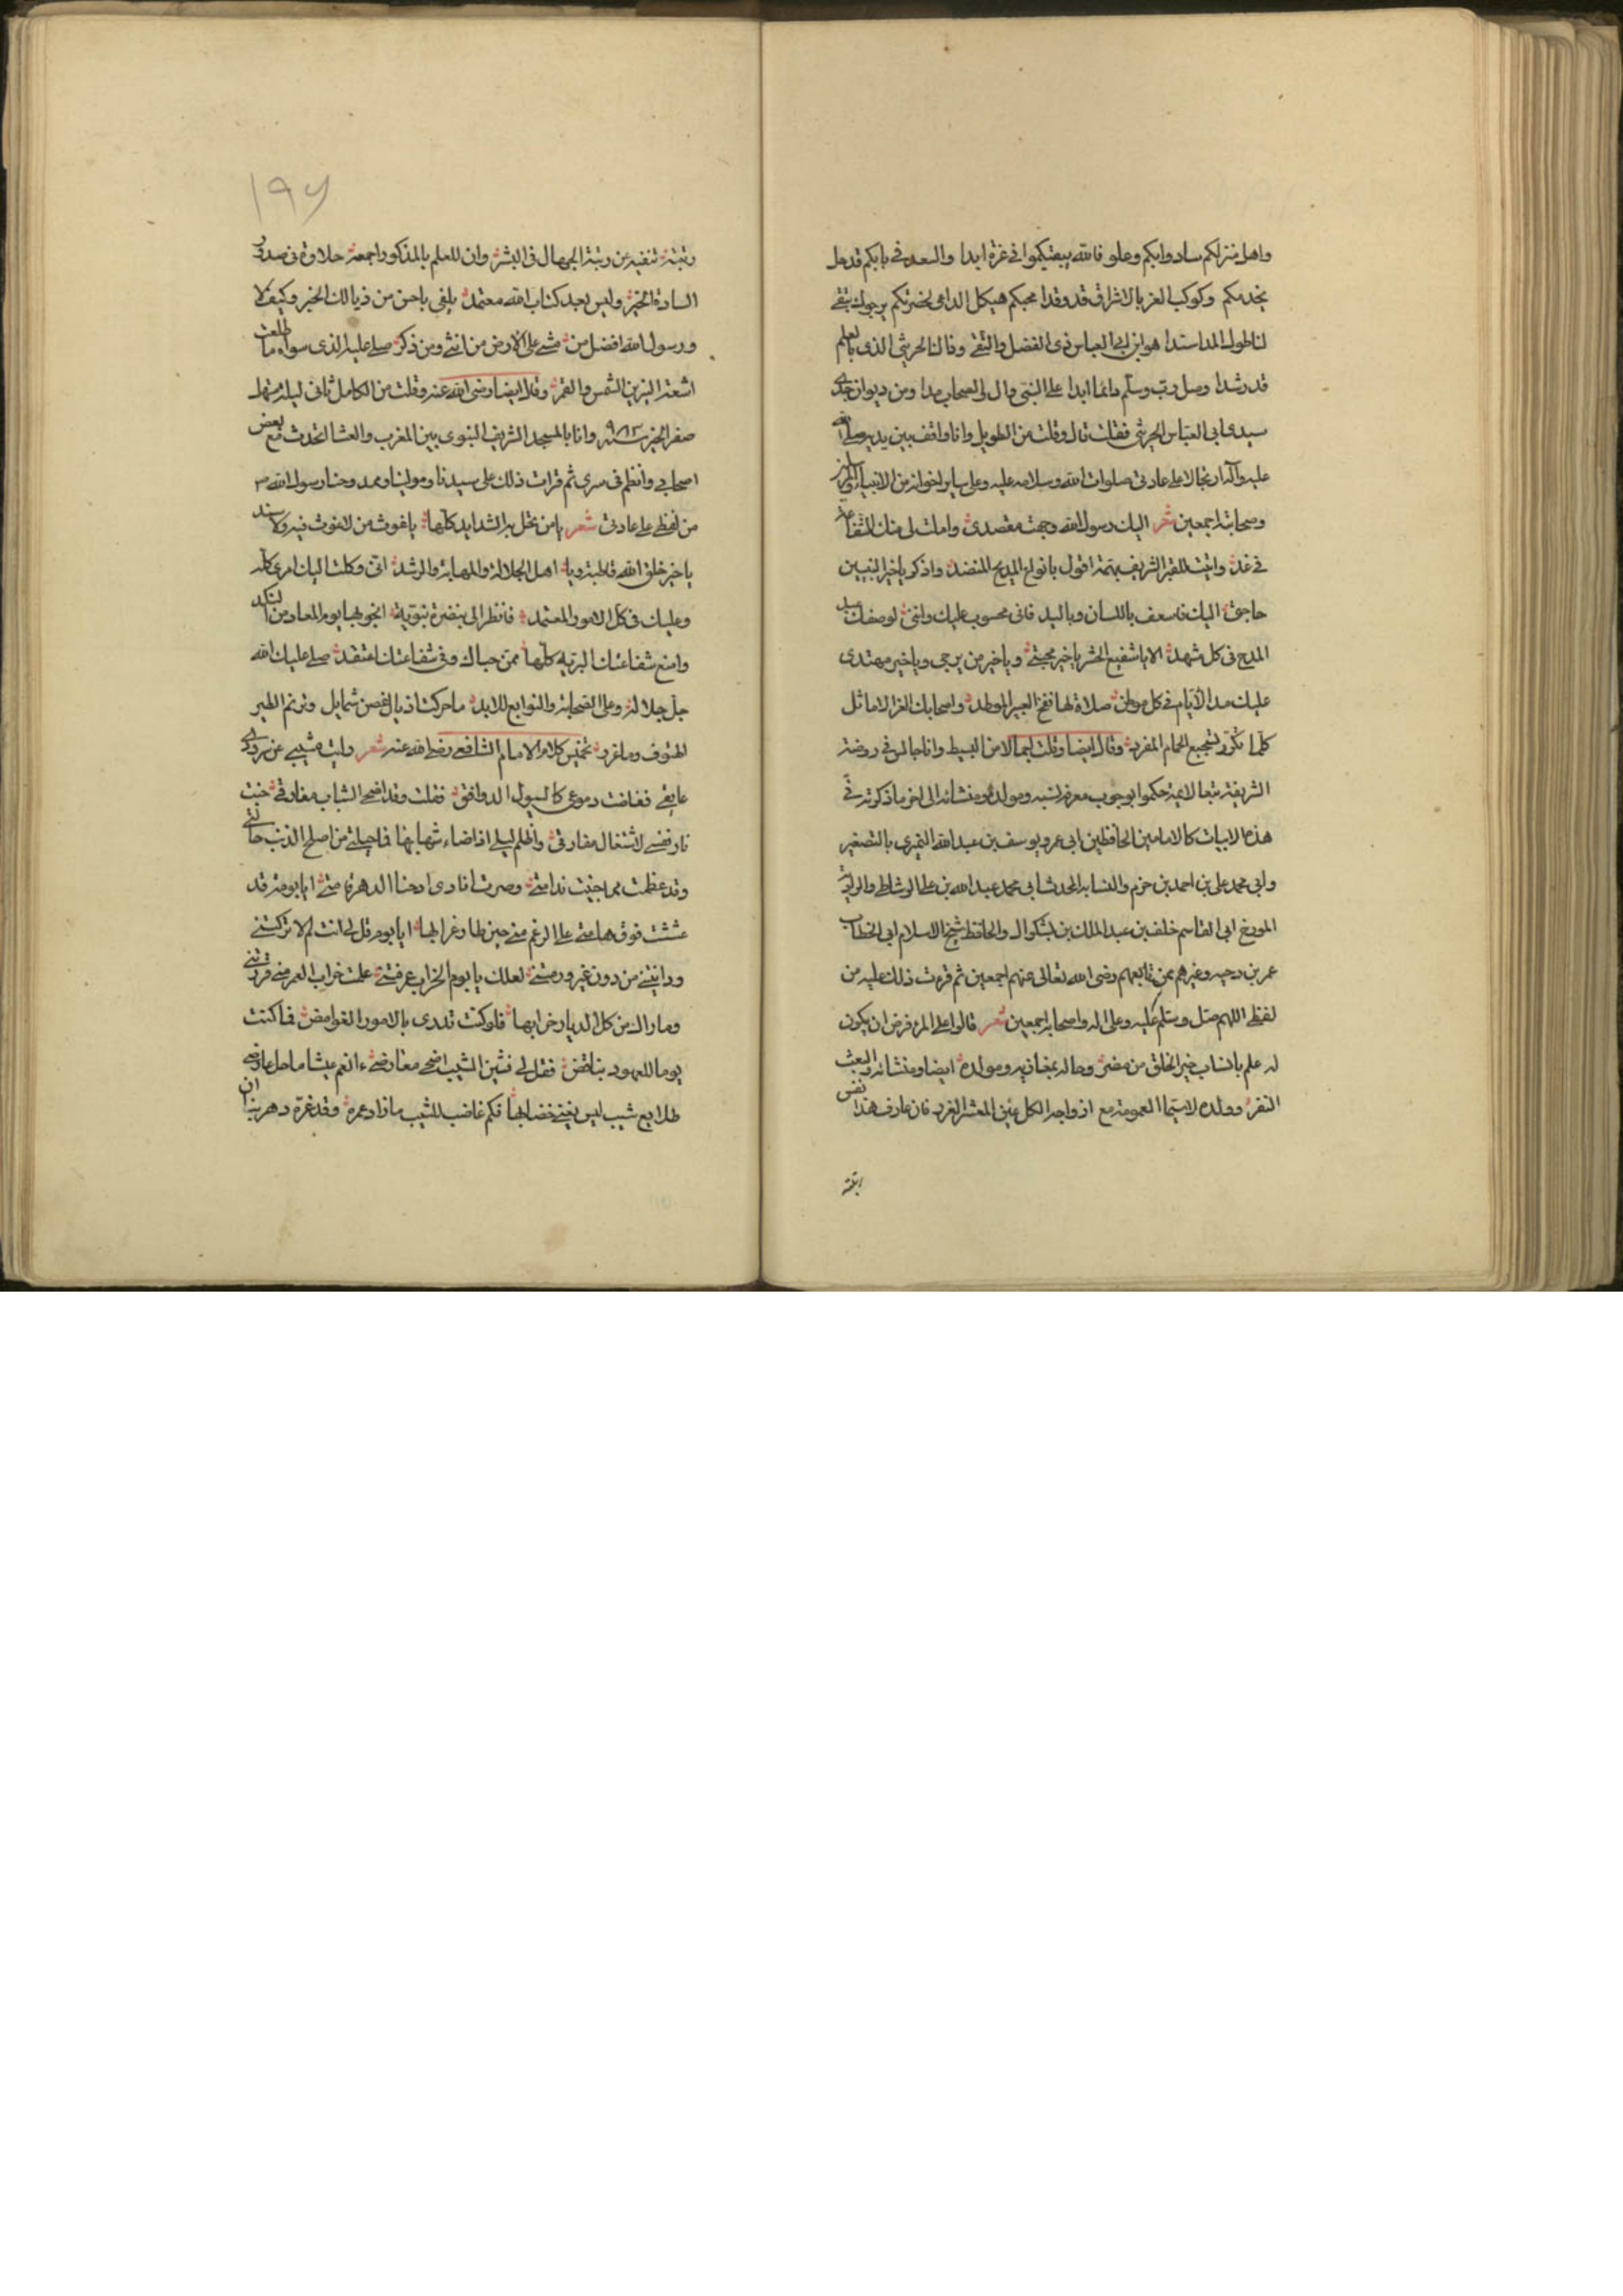 واهل منزلكم سادوا بكم وعلو فالله يبقيكموا في عزة ابدا والسعد في بابكم قد حل
يخدمكم وكوكب العز بالاشراق قد وقدا محبكم هيكل الداعي لحضرتكم يرجوك تبقى
لنا طول المدا سندا هو ابن ابي العباس ذي الفضل والتقى وقال الحريثي الذي بالعلم
قد رشدا وصل رب وسلم دائما ابدا على النبي وال لي الصحاب مدا ومن ديوان جدي
سيدي ابي العباس الحريثي فقلت قال وقلت من الطويل وانا واقف بين يديه صلى الله
عليه وآله ارتجالا على عادتي صلوات الله وسلامه عليه وعلى ساير اخوانه من الانبياء وآله
وصحابته اجمعين شعر اليك رسول الله وجهت مقصدي واملت لي منك الشفاعة
في غد واتيت للقبر الشريف بهمة اقول بانواع المديح المنضد واذكر يا خير النبيين
حاجتي اليك فاسعف باللسان وباليد فاني محسوب عليك وانني لوصفك
المدح في كل مشهد الا يا شفيع الحشر يا خير مجتبى ويا خير من يرجى ويا خير مهتدى
عليك مدا الايام في كل موطن صلاة لها نفح العبير الموطد واصحابك الغر الاماثل
كلما تكرر تسجيع الحمام المغرد وقال ايضا وقلت ايضا من البسيط وانا جالس في روضته
الشريفة تبعا لائمة حكموا بوجوب معرفة نسبه ومولده ومنشائه الى اخر ما ذكرته في
هذه الابيات كالامامين الحافظين ابي عمرو يوسف بن عبد الله النميري بالتصغير
وابي محمد علي بن احمد بن حزم والنسابه المحدث ابي محمد عبد الله بن علي الوشاطي والراوية
المورخ ابي القاسم خلف بن عبد الملك بن بشكوال والحافظ شيخ الاسلام ابي الخطاب
عمر بن دحيه وغيرهم ممن تابعهم رضي الله تعالى عنهم اجمعين ثم قرءت ذلك عليه من
لفظي اللهم صل وسلم عليه وعلى اله واصحابه اجمعين شعر قالوا على المرء فرض ان يكون
له علم بانساب خير الخلق من مضر وحاله بمغازيه ومولده ايضا ومنشائه والبعث
النفر وولده لاسيما العمومة مع ازواجه الكل عين المعشر الغرر فان عارف هذا نفس
رتبته
١٩٧
رتبته تنفيه عن رتبة الجهال في البشر وان للعلم بالمذكور اجمعه حلاوة في صدور
السادة الخير وليس بعد كتاب الله معتمد يلفى باحسن من ذيالك الخبر وكيف لا
ورسول الله افضل من مشى على الارض من انثى ومن ذكر صلى عليه الذي سواه ما طلعت
اشعة النيرين الشمس والقمر وقال ايضا رضي الله عنه وقلت من الكامل ثاني ليلة مستهل
صفر الخير سنة ٩٨٣ وانا بالمسجد الشريف النبوي بين المغرب والعشا اتحدث مع بعض
اصحابي وانظم في سري ثم قرات ذلك على سيدنا ومولينا ومحمدوحنا رسول الله ص
من لفظي على عادتي شعر يا من تحل به الشدايد كلها يا غوث من لا غوث فيه ولا سند
يا خير خلق الله قاطبة ويا اهل الجلالة والمهابة والرشد اني وكلت اليك امري كله
وعليك في كل الامور المعتمد فانظر الي بنضرة نبوية انجو بها يوم المعاد من النكد
وامنع شفاعتك البرية كلها ممن حباك وفي شفاعتك اعتقد صلى عليك الله
جل جلاله وعلى الصحابة والتوابع للابد ما حركت اذيال الغصن شمايل وترنم الطير
الهتوف وما غرد تخميس كلام الامام الشافعي رضي الله عنه شعر رايت مشيبي عن
عايقي ففاضت دموعي كالسيول الدوافق فقلت وقد اضحى الشباب مفارقي خبت
نار نفسي لاشتعال مفارقي واظلم ليلي اذ اضاء شهابها فما حيلتي من اصلح الذنب حالتي
وقد عظمت مما جنيت ندامتي وصرت انادي ارحنا الدهر قامتي ايا بومة قد
عششت فوق هامتي على الرغم مني حين طار غرابها ايا بوم قل لي انت لم لا تركتني
ورانيتني من دون غيري ورمتني لعلك يا بوم الخراب عرفتني علمت خراب العمر مني فزرتني
وماواك من كل الديار خرابها فلو كنت تدري بالامور الغوامض فما كنت
يوما للعهود بناقض فقل لي فشين الشيب اضحى معارضي ءانعم عيشا ما حل عارضي
طلايع شيب ليس يغني خضابها فكم غاضب للشيب ما زاد عمره وقد غره دهر به ان